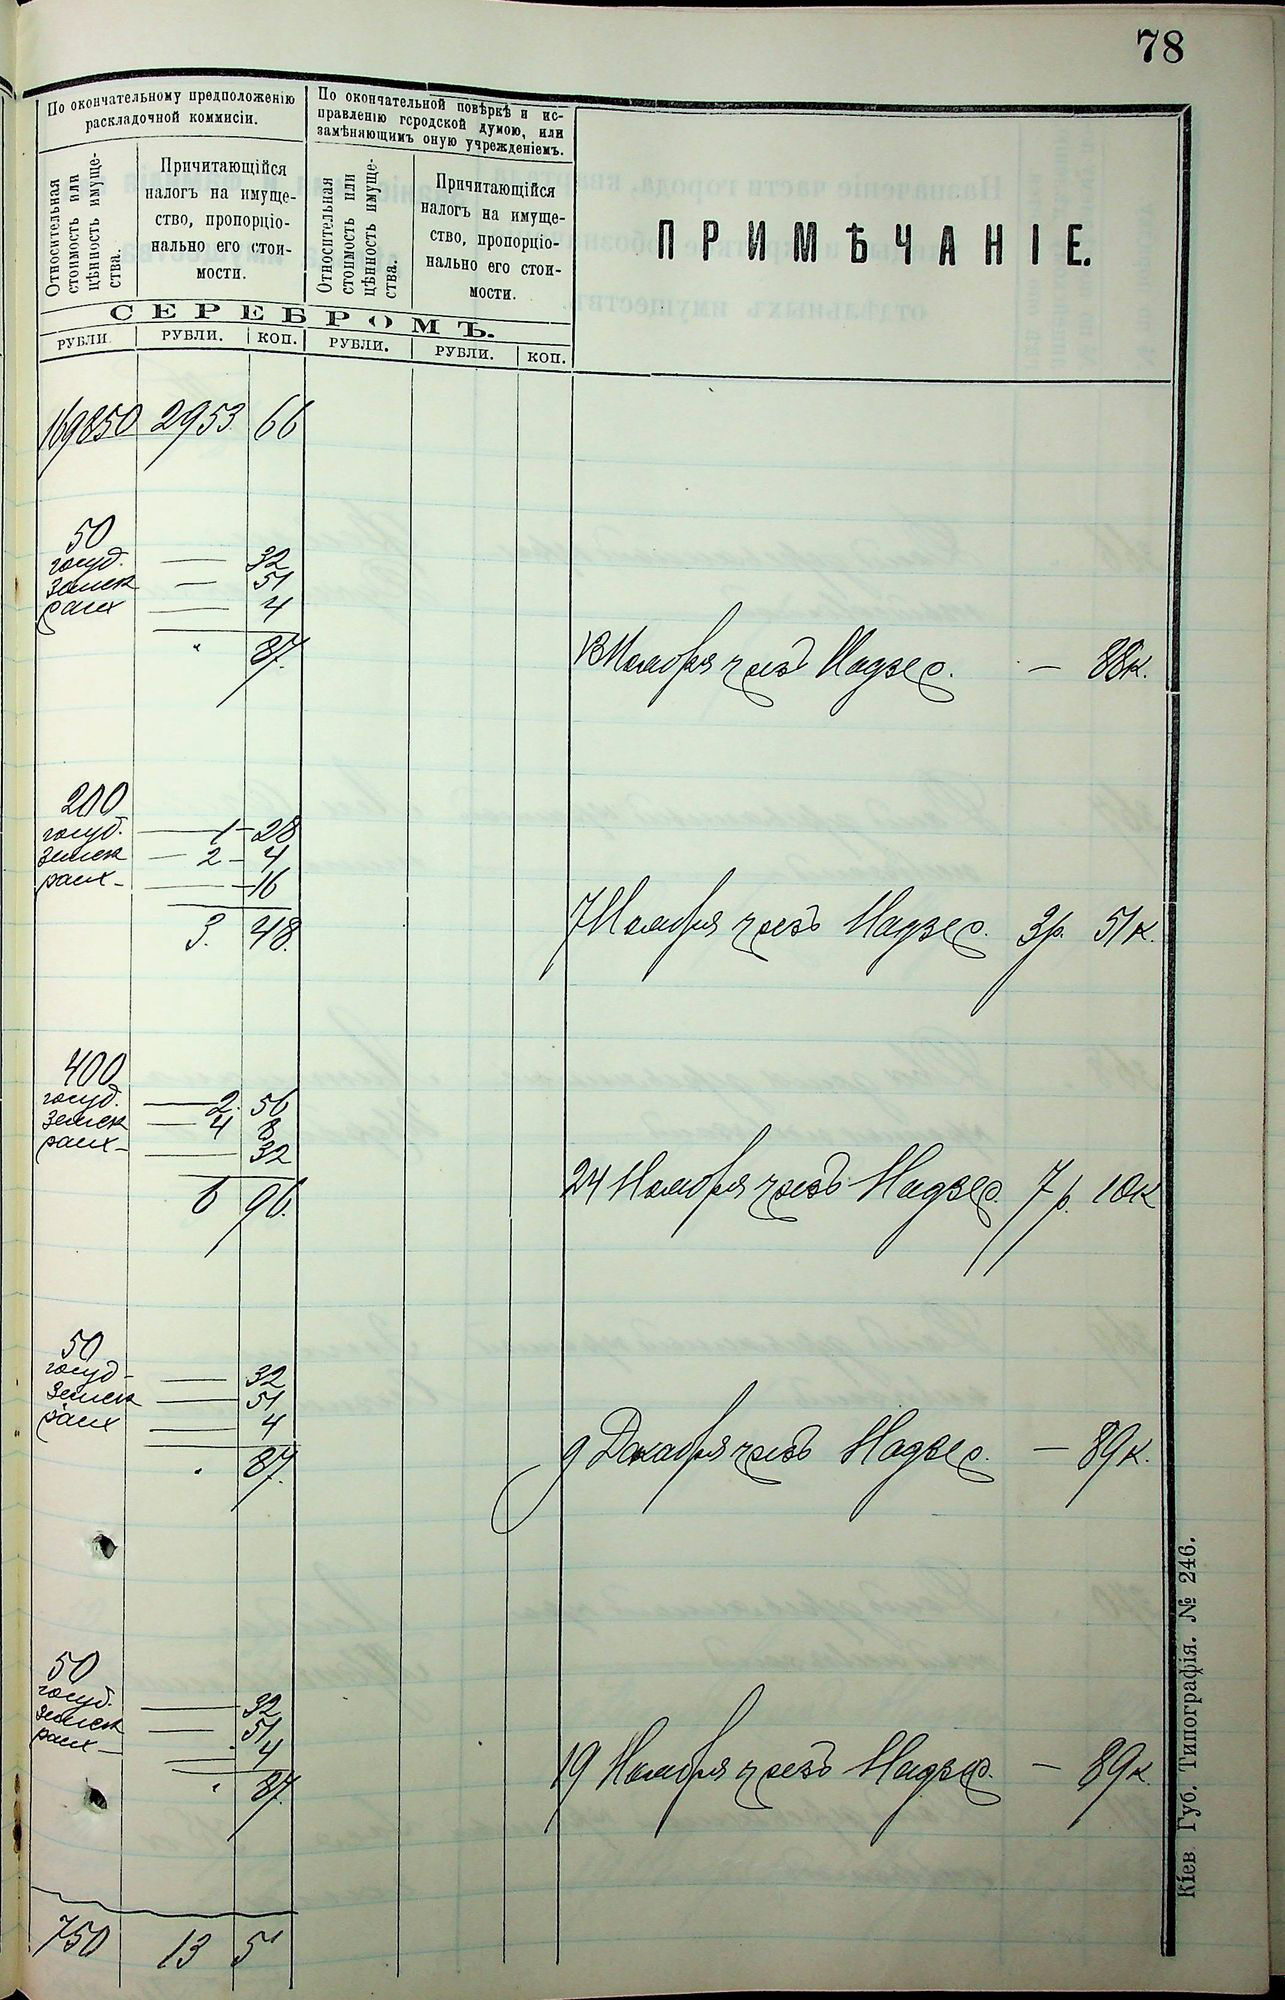 78
По окончательному предположенію
раскладочной коммисіи.
По окончательной повѣркѣ и ис-
правленію городской думою, или
замѣняющимъ оную учрежденіемъ.
Относительная
стоимость или
цѣнность имуще-
ства.
Причитающійся
налогъ на имуще-
ство, пропорціо-
нально его стои-
мости.
Относительная
стоимость или
цѣнность имуще-
ства.
Причитающійся
налогъ на имуще-
ство, пропорціо-
нально его стои-
мости.
ПРИМѢЧАНІЕ.
СЕРЕБРОМЪ.
РУБЛИ. РУБЛИ. КОП. РУБЛИ. РУБЛИ. КОП.
169850 2953 66
50
госуд. — 32
Земск — 51
4
" 87.
13 Ноября чрезъ Надзес. — 88к.
200
госуд. — 1 — 28
Земск — 2 — 4
— 16
3. 48.
7 Ноября чрезъ Надзес. 3р. 51к.
400
госуд. — 2. 56
Земск — 4 8
— 32
6 96.
24 Ноября чрезъ Надзес. 7р. 10к
50
госуд — 32
Земск — 51
— 4
" 87.
9 Декабря чрезъ Надзес. — 89к.
50
госуд. — 32
Земск — 51
— 4
" 87.
19 Ноября чрезъ Надзес. — 89к.
750 13 5
Кіев. Губ. Типографія. № 246.